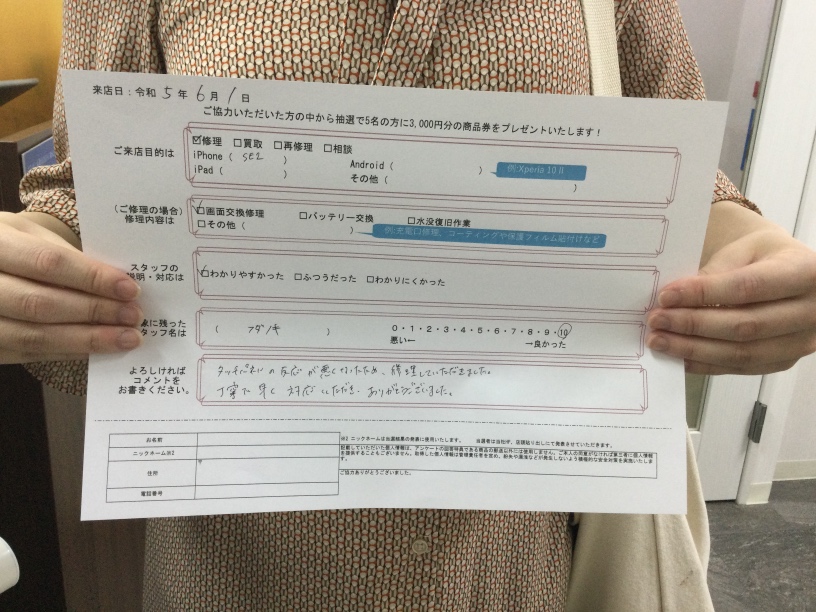 来店日：令和 5 年 6 月 1 日
ご協力いただいた方の中から抽選で5名の方に3,000円分の商品券をプレゼントいたします！
ご来店目的は
☑修理 □買取 □再修理 □相談
iPhone（ SE2 ） Android（ ） 例:Xperia 10Ⅱ
iPad（ ） その他（ ）
(ご修理の場合)
修理内容は
☑画面交換修理 □バッテリー交換 □水没復旧作業
□その他（ ） 例:充電口修理、コーティングや保護フィルム貼付けなど
スタッフの
説明・対応は
☑わかりやすかった □ふつうだった □わかりにくかった
に残った
タッフ名は
（ フダノキ ） 0・1・2・3・4・5・6・7・8・9・10
悪い← →良かった
よろしければ
コメントを
お書きください。
タッチパネルの反応が悪くなったため、修理していただきました。
丁寧で早く対応いただき、ありがとうございました。
お名前
ニックネーム※2
住所
〒
電話番号
※2 ニックネームは当選結果の発表に使用いたします。 当選者は当社HP、店頭貼り出しにて発表させていただきます。
ご協力ありがとうございました。